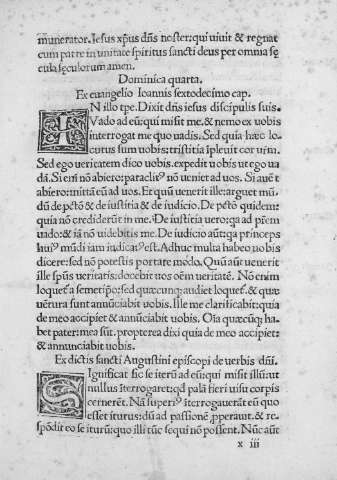 munerator. Iesus xp̃us dñs noster: qui uiuit & regnat
cum patre in unitate spiritus sancti deus per omnia sę
cula sęculorum amen.
Dominica quarta.
Ex euangelio Ioannis sextodecimo cap.
IN illo tp̃e. Dixit dñs iesus discipulis suis.
Vado ad eũ: qui misit me. & nemo ex uobis
interrogat me quo uadis. Sed quia hæc lo-
cutus sum uobis: tristitia ĩpleuit cor ur̃m.
Sed ego ueritatem dico uobis. expedit uobis ut ego ua
dã. Si em̃ nõ abiero: paraclitꝰ nõ ueniet ad uos. Si aũt
abiero: mittã eũ ad uos. Et quũ uenerit ille: arguet mũ-
dũ de pctõ & de iustitia & de iudicio. De pctõ quidem:
quia nõ crediderũt in me. De iustitia uero: qa ad pr̃em
uado: & iã nõ uidebitis me. De iudicio aũt: qa princeps
huiꝰ mũdi iam iudicatꝰ est. Adhuc multa habeo uobis
dicere: sed nõ potestis portare modo. Quũ aũt uenerit
ille spũs ueritatis: docebit uos oẽm ueritatẽ. Nõ enim
loquet᷑ a semetip̃o: sed quæcunq; audiet loquet᷑. & quæ
uẽtura sunt annũciabit uobis. Ille me clarificabit: quia
de meo accipiet & annũciabit uobis. Oĩa quæcũq; ha-
bet pater: mea sũt. propterea dixi quia de meo accipiet:
& annunciabit uobis.
Ex dictis sancti Augustini episcopi de uerbis dñi.
SIgnificat sic se iterũ ad eũ: qui misit illũ: ut
nullus ĩterrogaret: qđ palã fieri uisu corpis
cernerẽt. Nã superiꝰ ĩterrogauerãt eũ quo
esset iturus: dũ ad passionẽ ꝓperaret. & re-
spõdit eo se iturũ: quo illi tũc sequi nõ possent. Nũc aũt
x iii